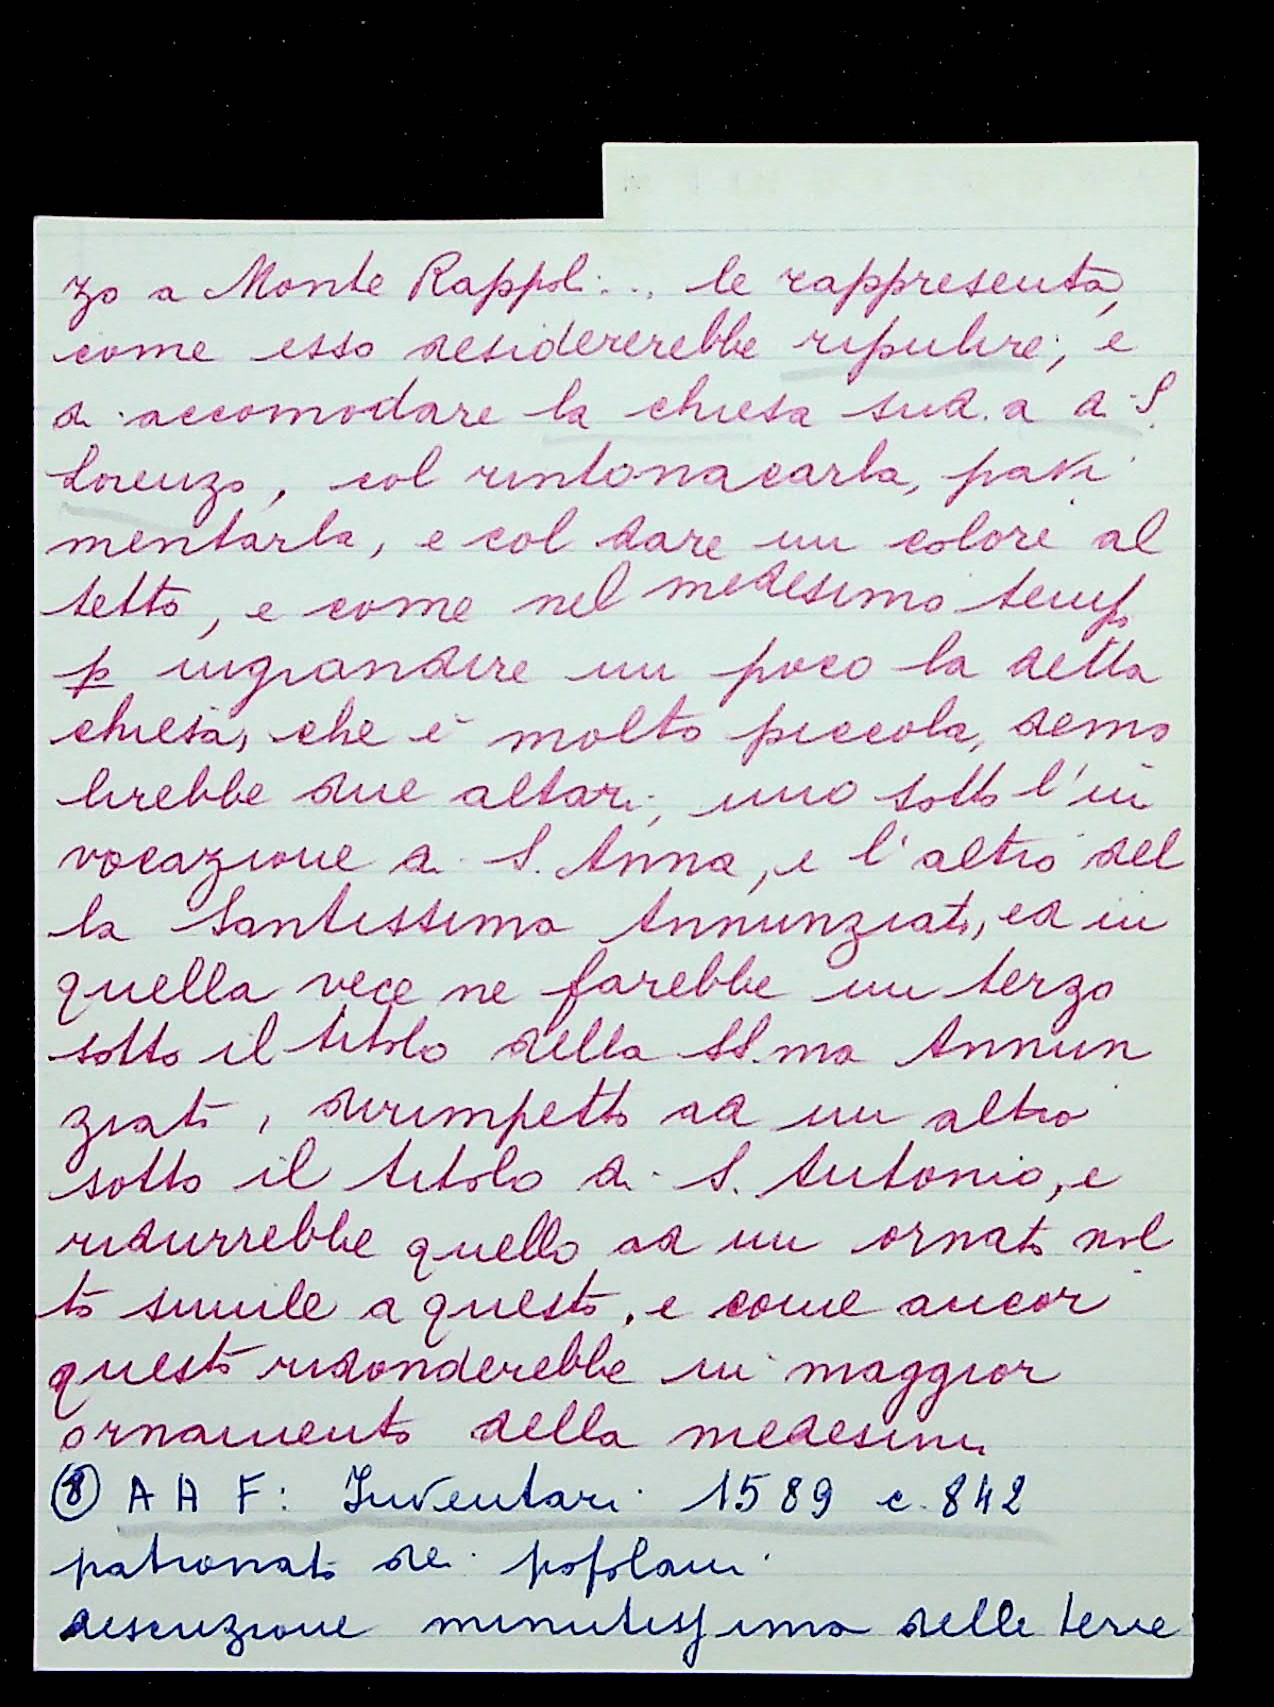 zo a Monte Rappoli... le rappresenta,
come esso desidererebbe ripulire, e
di accomodare la chiesa sud.a di S.
Lorenzo, col rintonacarla, pavi
mentarla, e col dare un colore al
tetto, e come nel medesimo tempo
p ingrandire un poco la detta
chiesa, che è molto piccola, demo
lirebbe due altari, uno sotto l'in
vocazione di S. Anna, e l'altro del
la Santissima Annunziata, ed in
quella vece ne farebbe un terzo
sotto il titolo della SS.ma Annun
ziata, dirimpetto ad un altro
sotto il titolo di S. Antonio, e
ridurrebbe quello ad un ornato mol
to simile a questo, e come ancor
questo ridonderebbe in maggior
ornamento della medesima
(8) A A F: Inventari 1589 c. 842
patronato dei popolani
descrizione minutissima delle terre